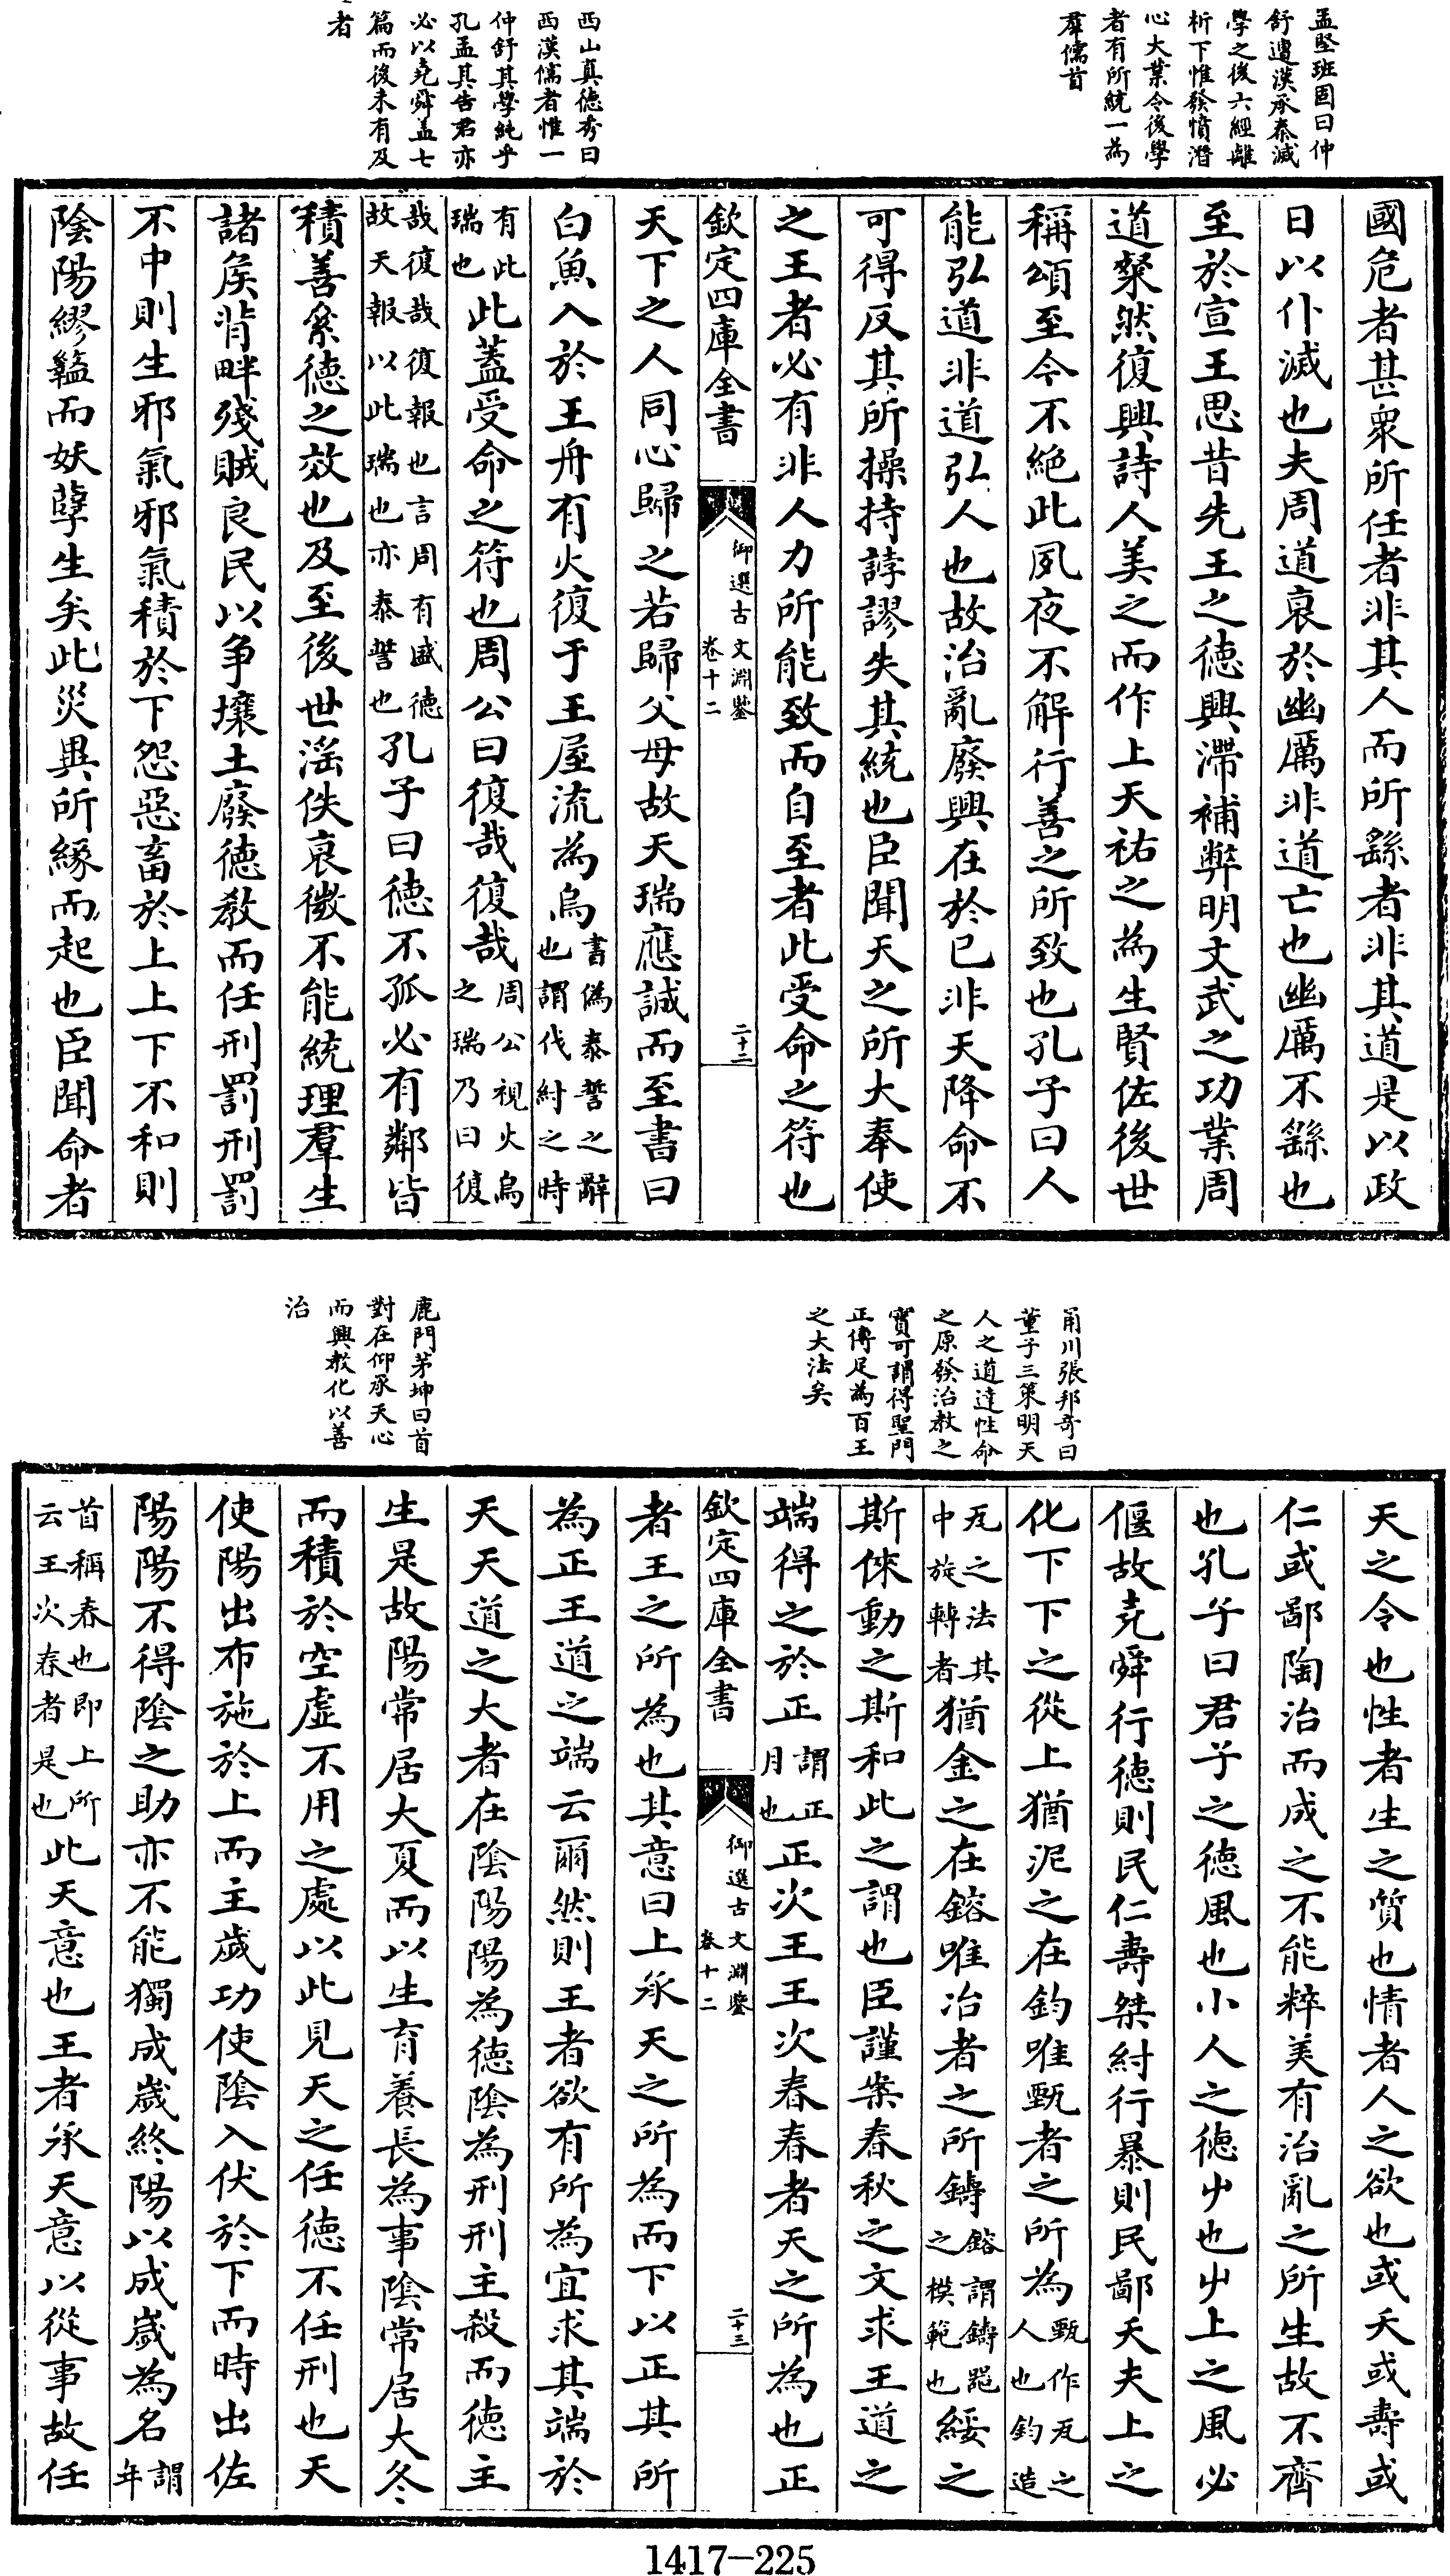 孟堅班固曰仲
舒遭漢承秦滅
學之後六經離
析下帷發憤潛
心大業令後學
者有所統一為
羣儒首
西山真德秀曰
西漢儒者惟一
仲舒其學純乎
孔孟其告君亦
必以堯舜蓋七
篇而後未有及
者
國危者甚衆所任者非其人而所繇者非其道是以政
日以仆滅也夫周道衰於幽厲非道亡也幽厲不繇也
至於宣王思昔先王之徳興滯補弊明文武之功業周
道粲然復興詩人美之而作上天祐之為生賢佐後世
稱頌至今不絶此夙夜不解行善之所致也孔子曰人
能弘道非道弘人也故治亂廢興在於已非天降命不
可得反其所操持誖謬失其統也臣聞天之所大奉使
之王者必有非人力所能致而自至者此受命之符也
欽定四庫全書
御選古文淵鑒
卷十二
二十二
天下之人同心歸之若歸父母故天瑞應誠而至書曰
白魚入於王舟有火復于王屋流為烏書偽泰誓之辭也謂伐紂之時
有此瑞也此蓋受命之符也周公曰復哉復哉周公視火烏之瑞乃曰復
哉復哉復報也言周有盛徳故天報以此瑞也亦泰誓也孔子曰徳不孤必有鄰皆
積善絫徳之效也及至後世滛佚衰微不能統理羣生
諸侯背畔殘賊良民以爭壤土廢徳教而任刑罰刑罰
不中則生邪氣邪氣積於下怨惡畜於上上下不和則
陰陽繆盭而妖孽生矣此災異所緣而起也臣聞命者
甬川張邦奇曰
董子三策明天
人之道達性命
之原發治教之
實可謂得聖門
正傳足為百王
之大法矣
鹿門茅坤曰首
對在仰承天心
而興教化以善
治
天之令也性者生之質也情者人之欲也或夭或壽或
仁或鄙陶冶而成之不能粹美有治亂之所生故不齊
也孔子曰君子之徳風也小人之徳屮也屮上之風必
偃故堯舜行徳則民仁壽桀紂行暴則民鄙夭夫上之
化下下之從上猶泥之在鈞唯甄者之所為甄作瓦之人也鈞造
瓦之法其中旋轉者猶金之在鎔唯冶者之所鑄鎔謂鑄器之模範也綏之
斯倈動之斯和此之謂也臣謹案春秋之文求王道之
端得之於正謂正月也正次王王次春春者天之所為也正
欽定四庫全書
御選古文淵鑒
卷十二
二十三
者王之所為也其意曰上承天之所為而下以正其所
為正王道之端云爾然則王者欲有所為宜求其端於
天天道之大者在陰陽陽為徳陰為刑刑主殺而徳主
生是故陽常居大夏而以生育養長為事陰常居大冬
而積於空虛不用之處以此見天之任徳不任刑也天
使陽出布施於上而主歲功使陰入伏於下而時出佐
陽陽不得陰之助亦不能獨成歲終陽以成歲為名謂年
首稱春也即上所云王次春者是也此天意也王者承天意以從事故任
1417-225